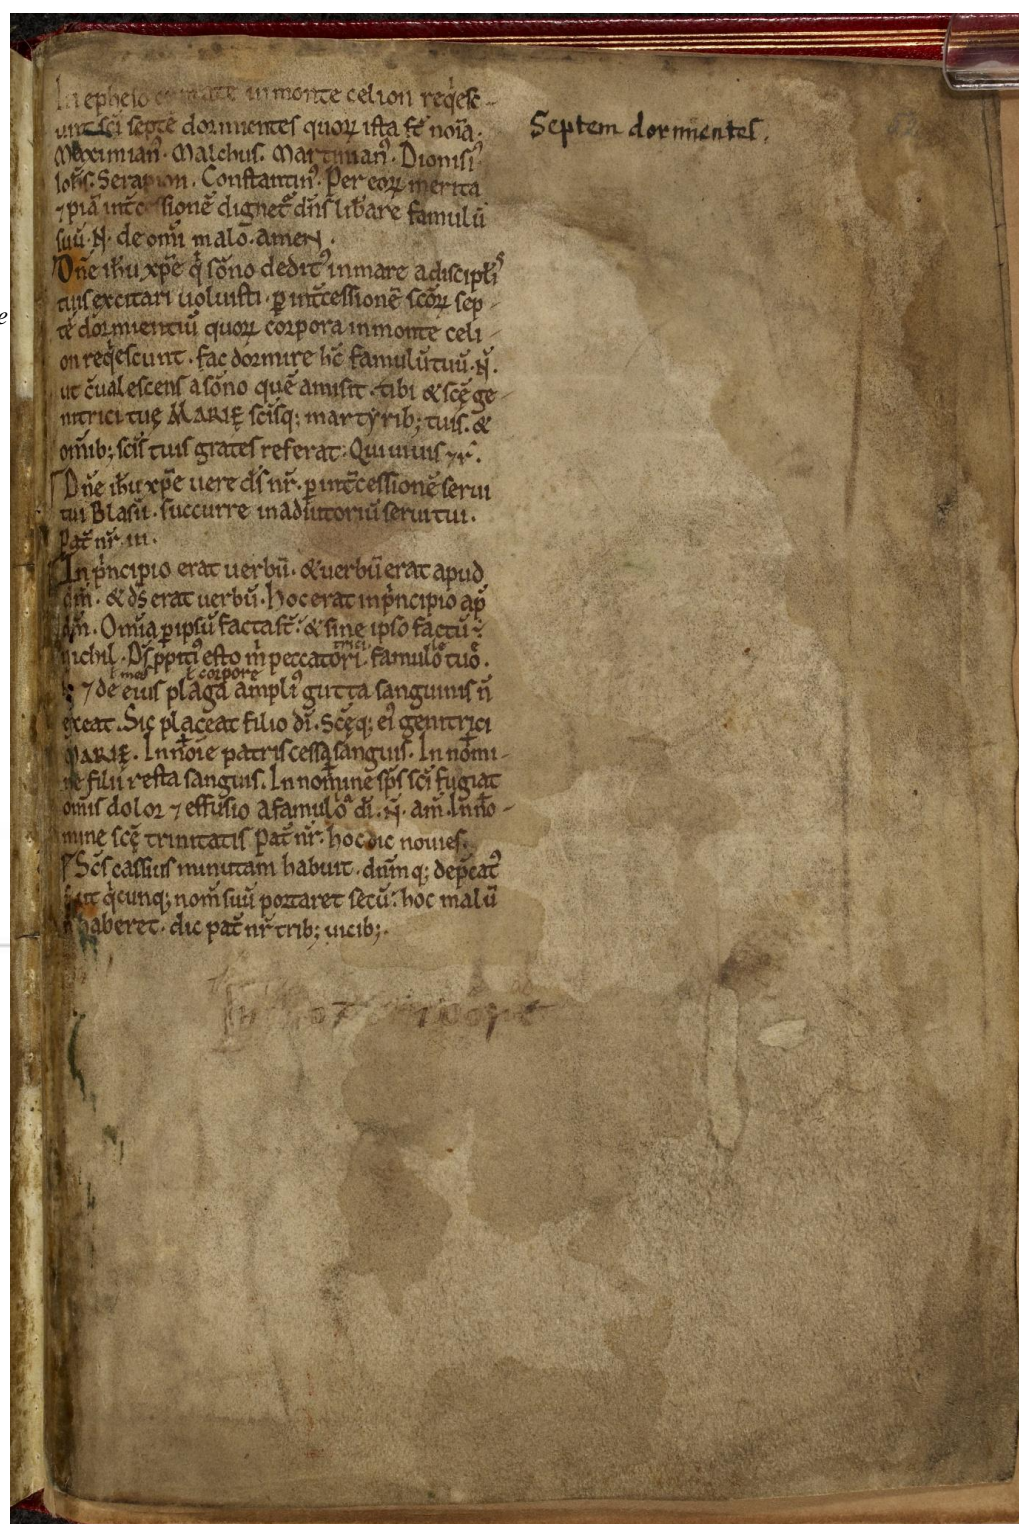 In epheso ciuitate in monte celion req̇esc-
unt sc̄i septē dormientes quoꝝ ista st̄ noīa.
Maximian᷒. Malchus. Martinian᷒. Dionisi᷒
Ioh̄s. Serapion. Constantin᷒. Per eoꝝ merita
⁊ piā int̄cessionē dignet᷑ dn̄s lib̄are famulū
suū .N. de om̄i malo. amen.
Dn̄e ih̄u xp̄e q̇ sōno dedit᷒ in mare a discipl̄is
tuis excitari uoluisti. ꝑ int̄cessionē scōꝝ sep-
tē dormientiū quoꝝ corpora in monte celi-
on reqͥescunt. fac dormire hc̄ famulū tuū .N.
ut c̄ualescens a sōno quē amisit. tibi & scę̄ ge-
nitrici tuę MARIĘ scīsq; martyrib; tuis. &
om̄ib; scīs tuis grates referat. Qui uiuis ⁊ r̄.
Dn̄e ih̄u xp̄e uere ds̄ nr̄. ꝑ int̄cessionē serui
tui Blasii. succurre in adiutoriū serui tui.
Pat̄ nr̄ .iii.
In pͥncipio erat uerbū. & uerbū erat apud
dm̄. & ds̄ erat uerbū. Hoc erat in pͥncipio ap̄
dm̄. Om̄ia ꝑ ipsū facta st̄. & sine ipso factū ē
nichil. Ds̄ ꝓpiti᷒ esto m̄ peccatori. famulo tuo.
⁊ de eius plaga ampli᷒ gutta sanguinis n̄
ł mea ł corpore
exeat. Sic placeat filio dī. Scę̄q; ei᷒ genitrici
MARIĘ. In nōie patris cessa sanguis. In nomi-
ne filii resta sanguis. In nomine sp̄s sc̄i fugiat
om̄is dolor ⁊ effusio a famulo dī .N. am̄. In no-
mine scę̄ trinitatis Pat̄ nr̄. hoc dic nouies.
Sc̄s cassius minutam habuit. dn̄mq; dep̄cat᷒
ut q̇cunq; nom̄ suū portaret secū. hoc malū
n̄ haberet. dic pat̄ nr̄ trib; uicib;.
Septem dormientes.